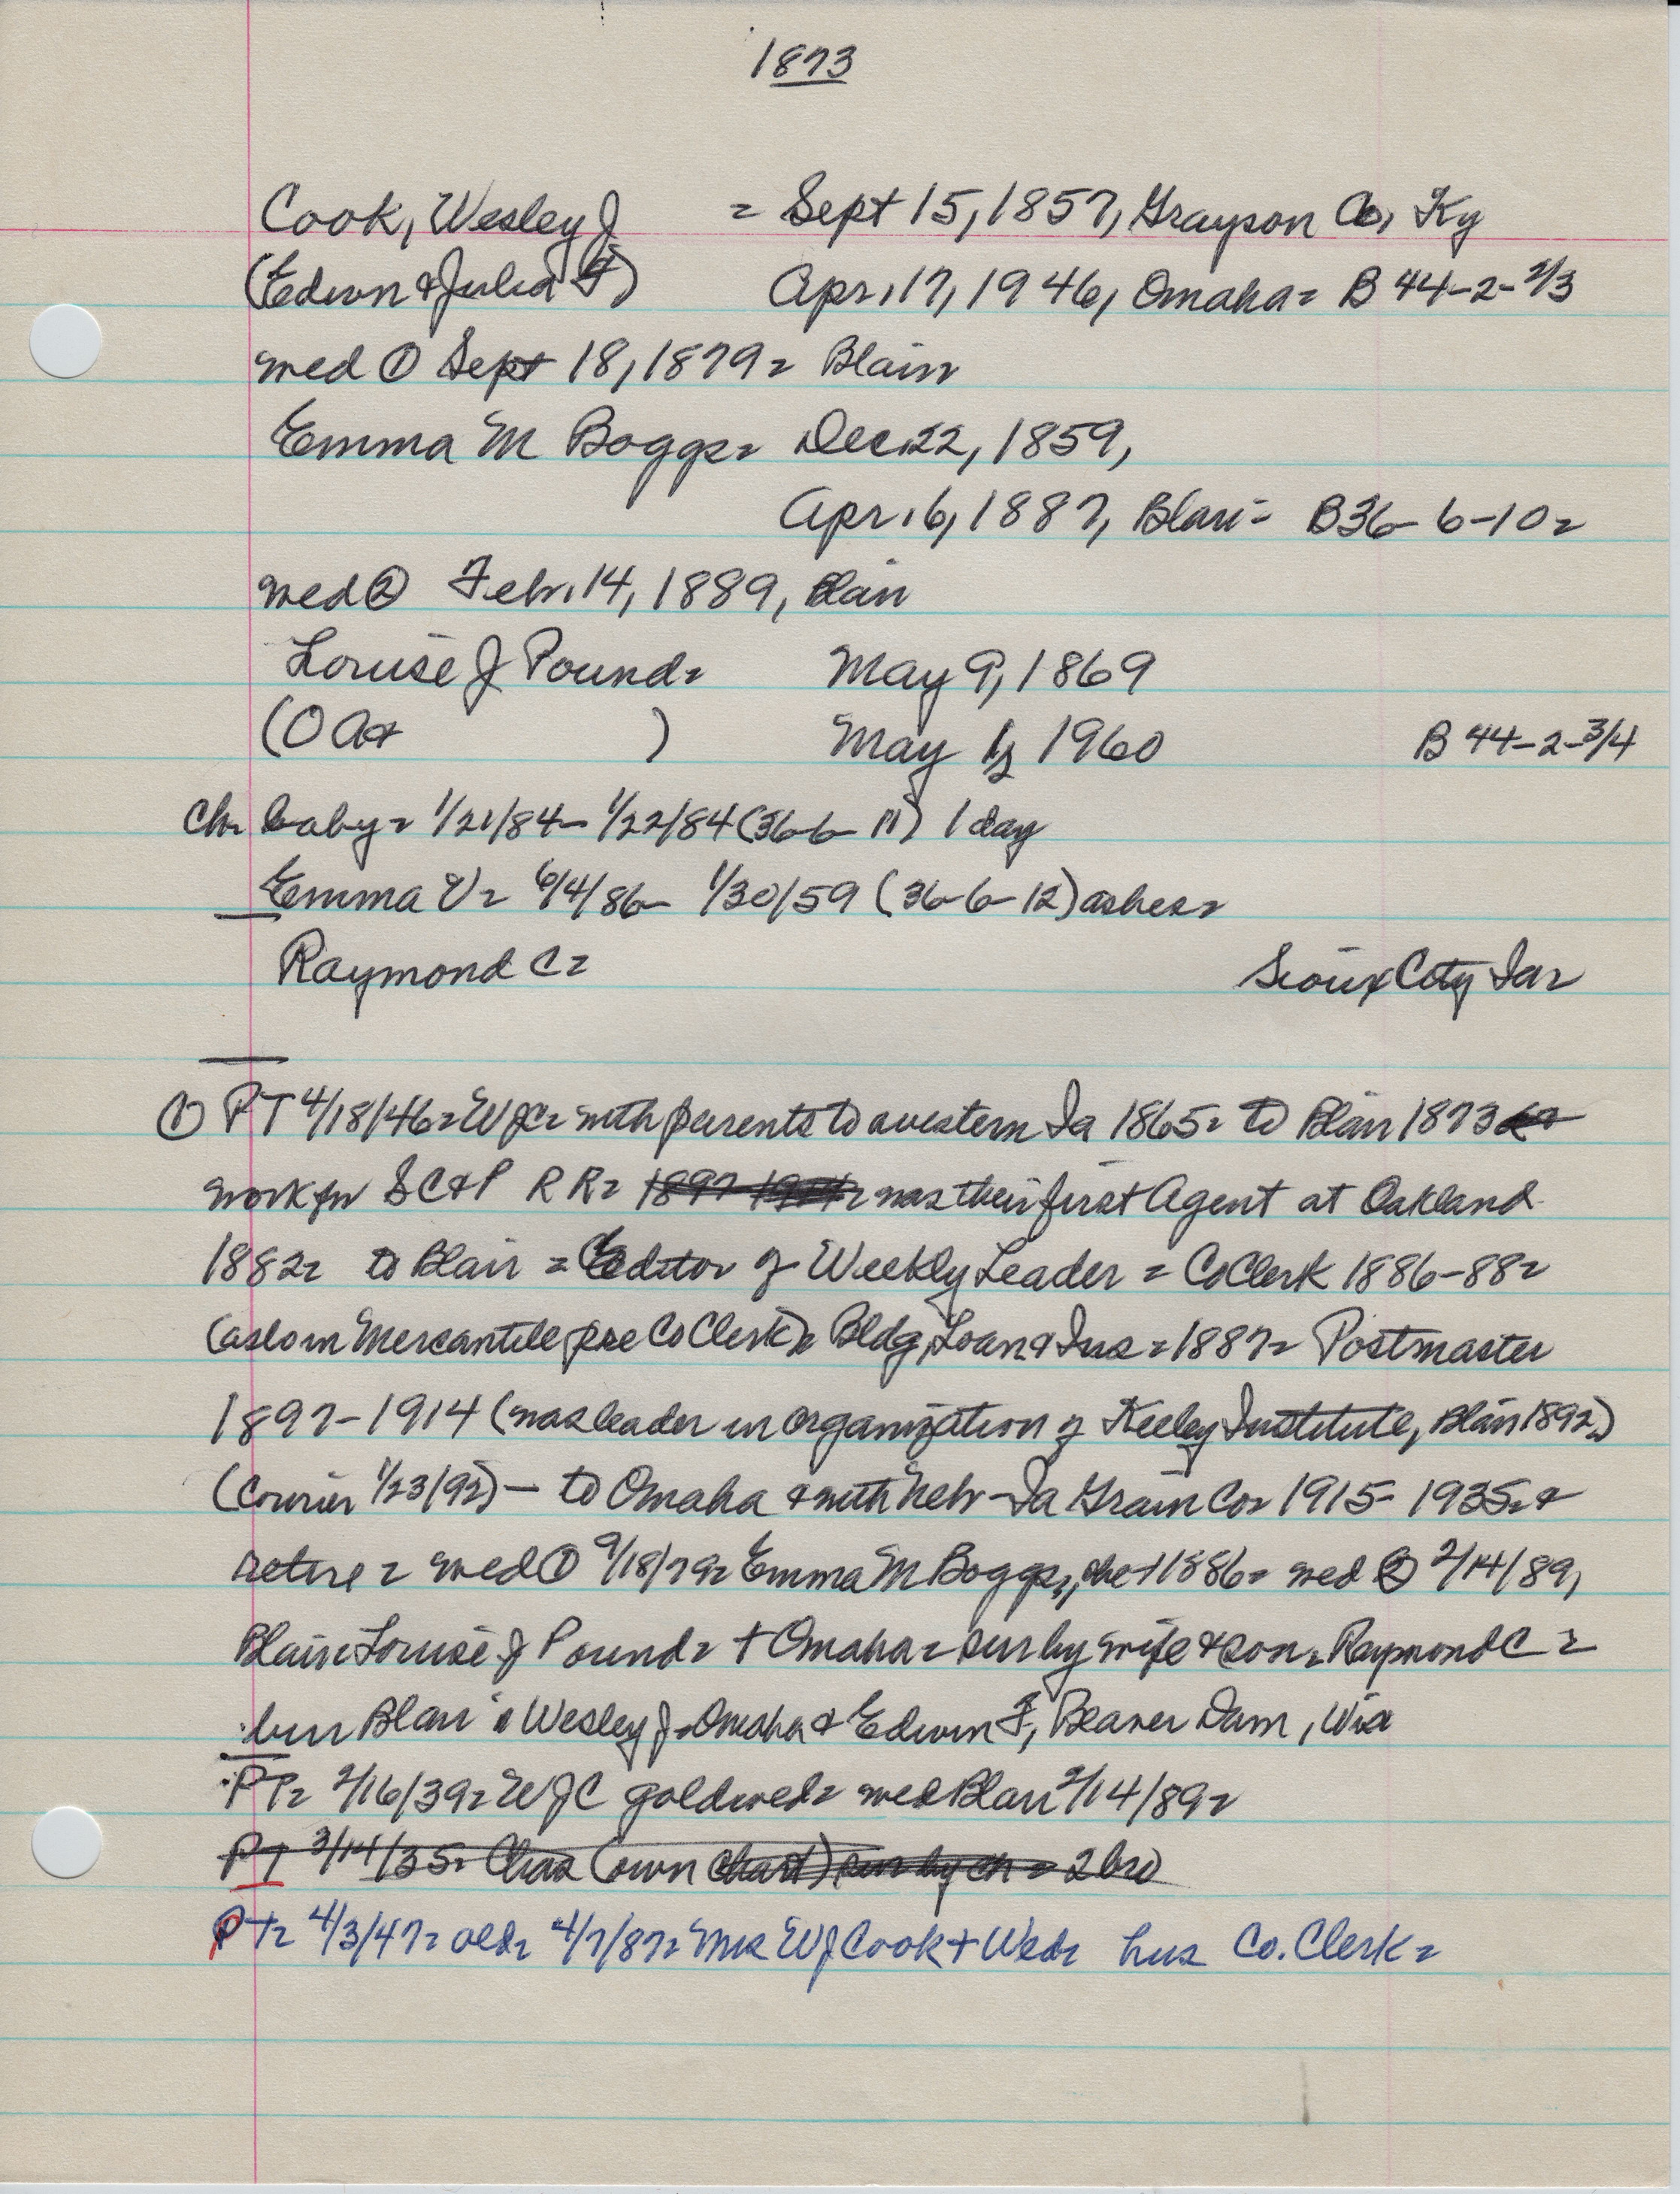 1873
Cook, Wesley J = Sept 15, 1857, Grayson Co, Ky
(Edwn & Julia F) Apr. 17, 1946, Omaha = B 44-2-2/3
med ① Sept 18, 1879 = Blair
Emma M Boggs = Dec 22, 1859,
Apr. 6, 1887, Blair = B36-6-10 =
med ② Feb. 14, 1889, Blair
Louise J Pound = May 9, 1869
(O A & ) May 1, 1960 B 44-2-3/4
Ch. baby = 1/21/84 - 1/22/84 (36-6-11) 1 day
Emma V = 6/4/86 - 1/30/59 (36-6-12) ashes =
Raymond C = Sioux City Ia =
① PT 4/18/46 = WJC = with parents to western Ia 1865 = to Blair 1873
work for SC&P RR = 1897-1914 = was their first Agent at Oakland
1882 = to Blair = Editor of Weekly Leader = Co Clerk 1886-88 =
(aslo in Mercantile pre Co Clerk) = Bldg, Loan & Ins = 1887 = Postmaster
1897-1914 (was leader in organization of Keeley Institute, Blair 1892)
(Courier 1/23/92) - to Omaha & with Nebr-Ia Grain Co = 1915-1935 = &
retire = med ① 9/18/79 = Emma M Boggs, she + 1886 = med ② 2/14/89,
Blair Louise J Pound = + Omaha = sur by wife & son = Raymond C =
bur Blair Wesley J = Omaha & Edwin F, Beaver Dam, Wis
PT = 2/16/39 = WJC gold wed = med Blair 2/14/89 =
PT 3/14/35 = Chas (own chart) sur by ch = 2 bro
PT = 4/3/47 = old = 4/7/87 = Mrs WJ Cook + Wed = hus Co. Clerk =